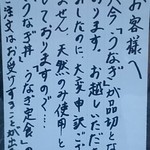 お客様へ
只今、「うなぎ」が品切とな
おります。お越しいただ
のに大変申訳
ません。天然のみ使用と
しておりますので…
うなぎ丼」「うなぎ定食」の
注文はお受けすることが出